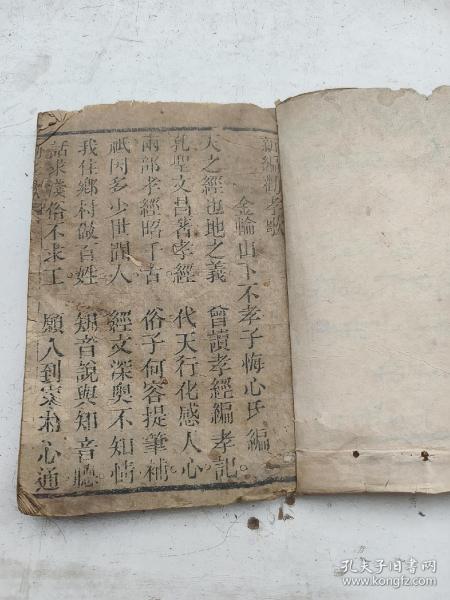 新編勸孝歌
金輪山下不孝子悔心氏編
天之經也地之義 曾讀孝經編孝記
孔聖文昌著孝經 代天行化感人心
兩部孝經昭千古 俗子何容提筆補
祇因多少世間人 經文深奥不知情
我住鄉村做百姓 知音說與知音聽
話求淺俗不求工 願人到家相心通
孔夫子旧书网
www.kongfz.com